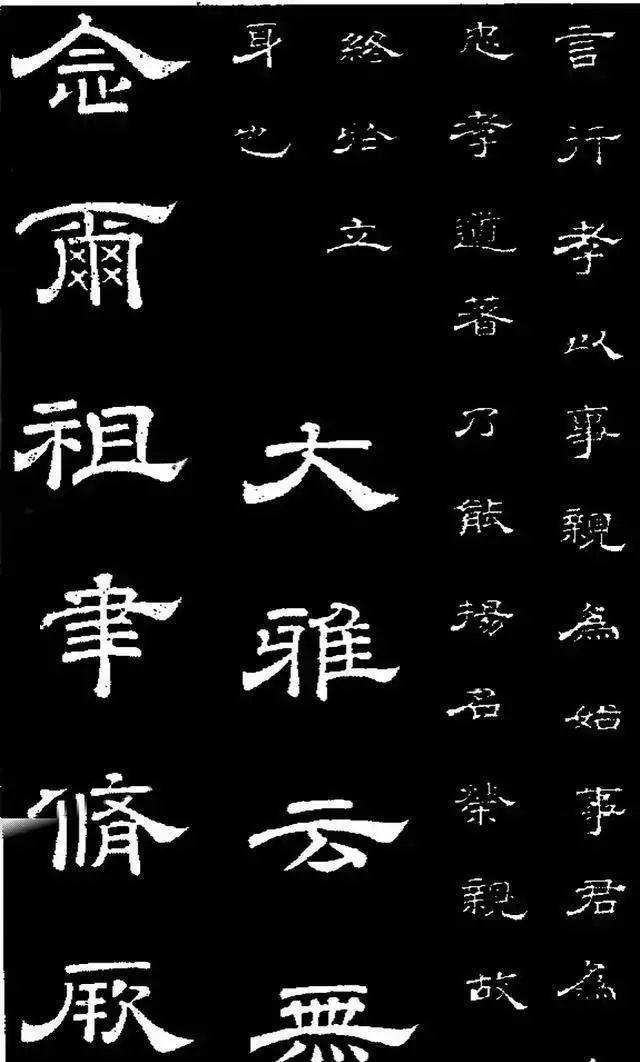 言行孝以事親為始事君為
忠孝道著乃能揚名榮親故
終於立
身也
大雅云無
念爾祖聿脩厥